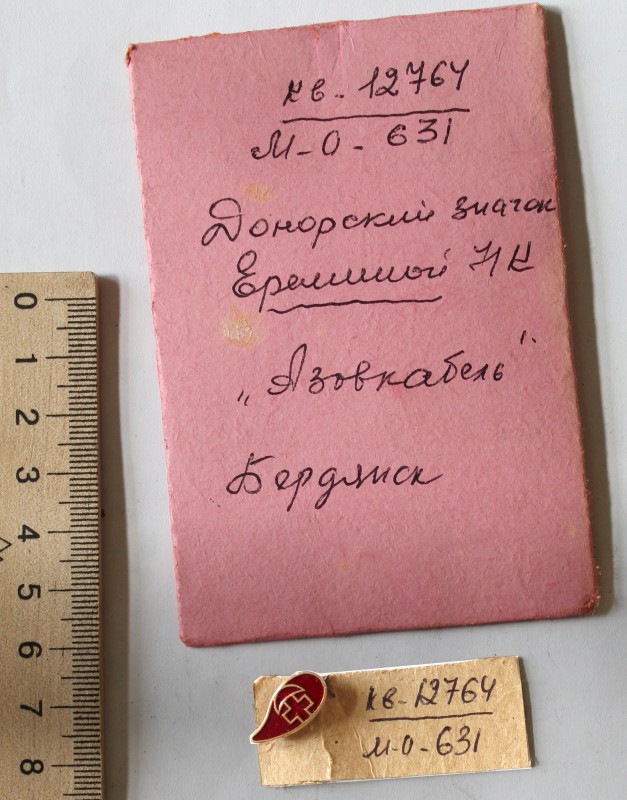 кв - 12764
М - О - 631
Донорский значок
Ереминой Н К
"Азовкабель".
Бердянск
0
1
2
3
4
5
6
7
8
кв - 12764
М - О - 631